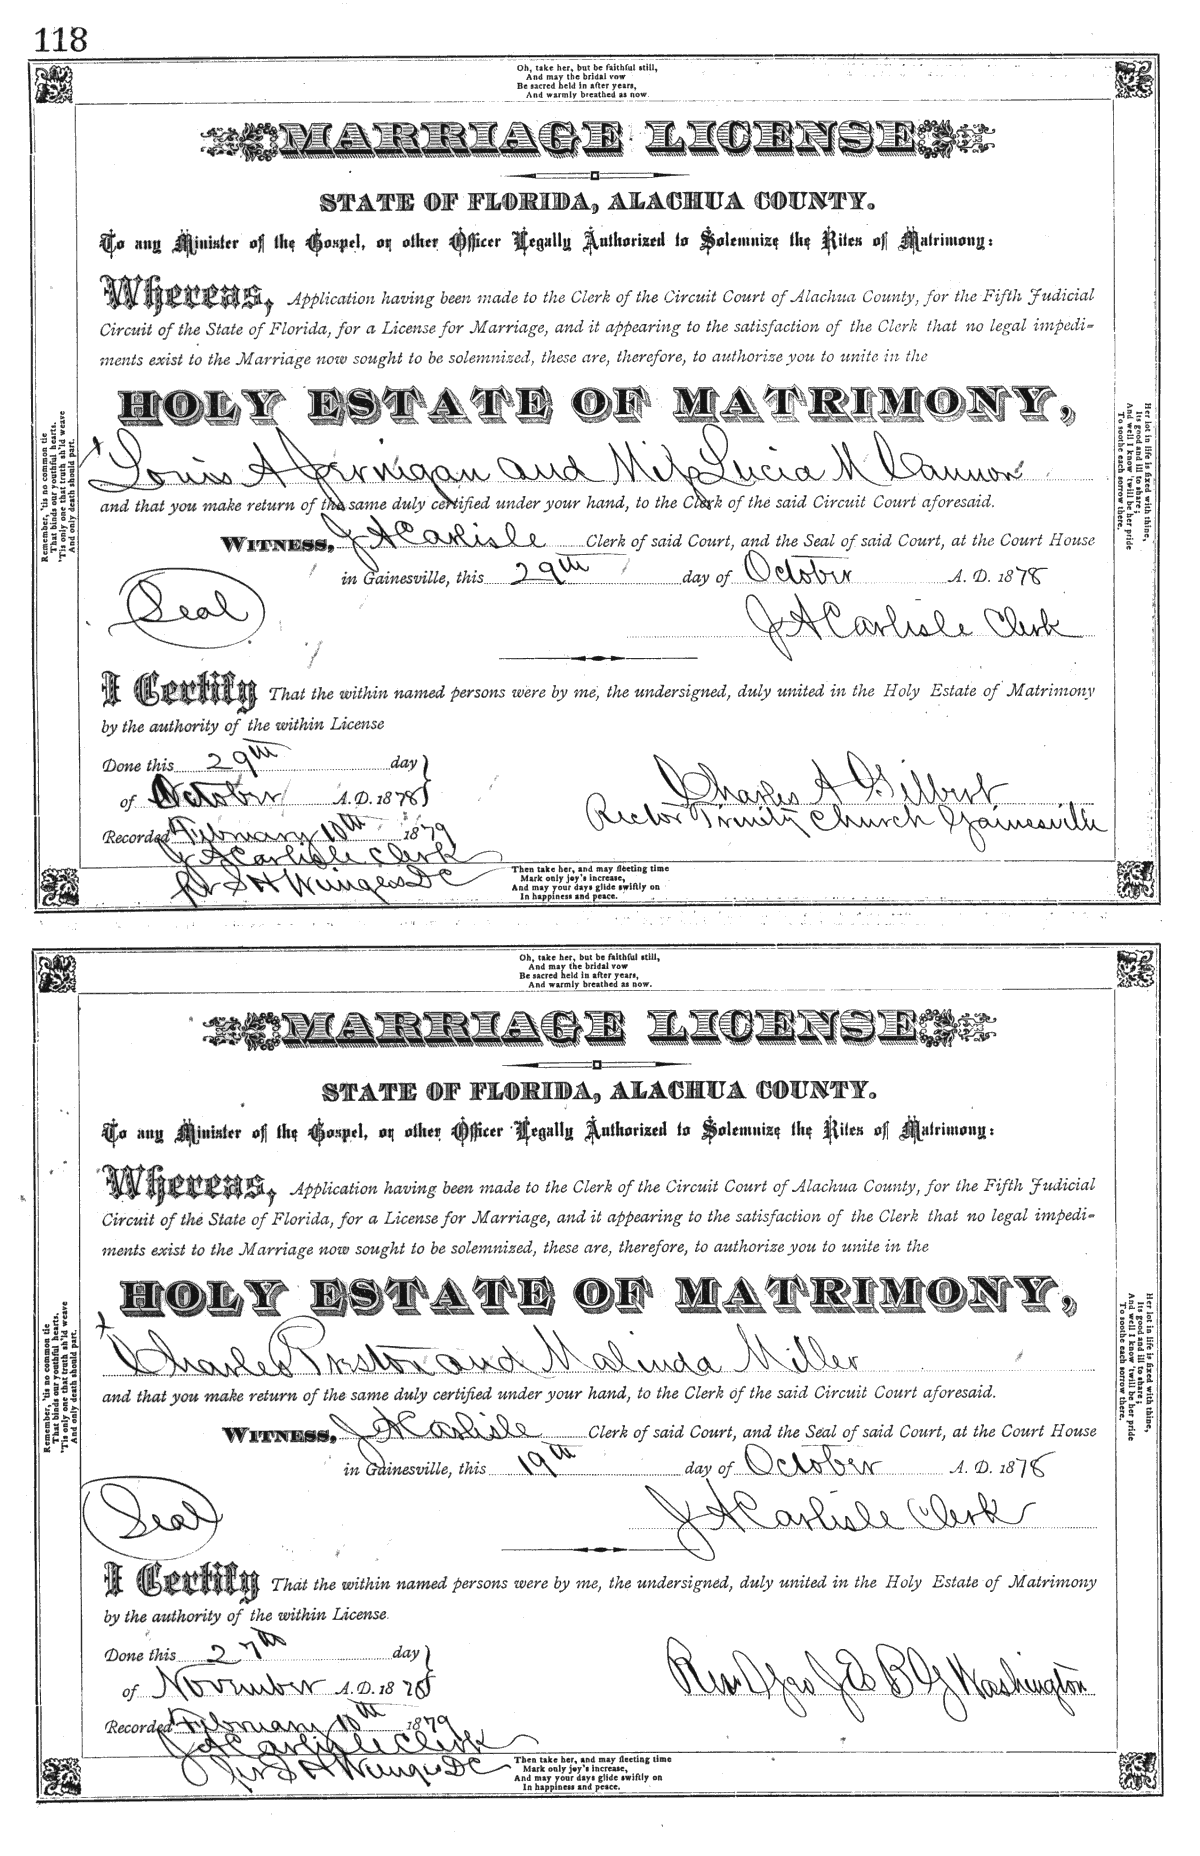 118
Oh, take her, but be faithful still,
And may the bridal vow
Be sacred held in after years,
And warmly breathed as now.
MARRIAGE LICENSE
STATE OF FLORIDA, ALACHUA COUNTY.
To any Minister of the Gospel, or other Officer Legally Authorized to Solemnize the Rites of Matrimony:
Whereas, Application having been made to the Clerk of the Circuit Court of Alachua County, for the Fifth Judicial
Circuit of the State of Florida, for a License for Marriage, and it appearing to the satisfaction of the Clerk that no legal impedi-
ments exist to the Marriage now sought to be solemnized, these are, therefore, to authorize you to unite in the
HOLY ESTATE OF MATRIMONY,
Remember, 'tis no common tie
That binds our youthful hearts.
'Tis only one that truth sh'ld weave
And only death should part.
Her lot in life is fixed with thine,
Its good and ill to share;
And well I know 'twill be her pride
To soothe each sorrow there.
x Louis A Jernigan and Miss Lucia M Cannon
and that you make return of the same duly certified under your hand, to the Clerk of the said Circuit Court aforesaid.
WITNESS, J A Carlisle Clerk of said Court, and the Seal of said Court, at the Court House
in Gainesville, this 29th day of October A. D. 1878
Seal
J A Carlisle Clerk
I Certify That the within named persons were by me, the undersigned, duly united in the Holy Estate of Matrimony
by the authority of the within License
Done this 29th day
of October A.D. 1878
Charles A Gilbert
Rector Trinity Church Gainesville
Recorded February 10th 1879
J A Carlisle Clerk
per S H DC
Then take her, and may fleeting time
Mark only joy's increase,
And may your days glide swiftly on
In happiness and peace.
Oh, take her, but be faithful still,
And may the bridal vow
Be sacred held in after years,
And warmly breathed as now.
MARRIAGE LICENSE
STATE OF FLORIDA, ALACHUA COUNTY.
To any Minister of the Gospel, or other Officer Legally Authorized to Solemnize the Rites of Matrimony:
Whereas, Application having been made to the Clerk of the Circuit Court of Alachua County, for the Fifth Judicial
Circuit of the State of Florida, for a License for Marriage, and it appearing to the satisfaction of the Clerk that no legal impedi-
ments exist to the Marriage now sought to be solemnized, these are, therefore, to authorize you to unite in the
HOLY ESTATE OF MATRIMONY,
Remember, 'tis no common tie
That binds our youthful hearts.
'Tis only one that truth sh'ld weave
And only death should part.
Her lot in life is fixed with thine,
Its good and ill to share;
And well I know 'twill be her pride
To soothe each sorrow there.
x Charles Prestor and Malinda Miller
and that you make return of the same duly certified under your hand, to the Clerk of the said Circuit Court aforesaid.
WITNESS, J A Carlisle Clerk of said Court, and the Seal of said Court, at the Court House
in Gainesville, this 19th day of October A. D. 1878
Seal
J A Carlisle Clerk
I Certify That the within named persons were by me, the undersigned, duly united in the Holy Estate of Matrimony
by the authority of the within License.
Done this 27th day
of November A.D. 1878
Rev Geo B G Washington
Recorded February 10th 1879
J A Carlisle Clerk
per S H DC
Then take her, and may fleeting time
Mark only joy's increase,
And may your days glide swiftly on
In happiness and peace.